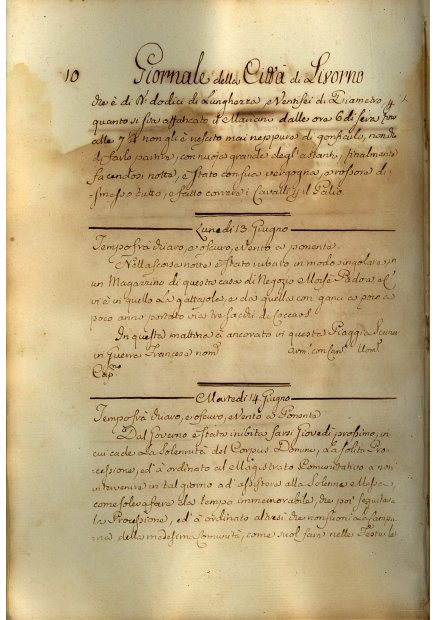 10 Giornale della Città di Livorno
che è di N. dodici di Lunghezza, e Ventisei di Diametro
quanto si sera affaticato il Mariani dalle ore 6 di sera fino
alle 7 1/4 non gli è riescito mai neppure di gonfiarlo, non che
di farlo partire, con noia grande degl'astanti, finalmente
facendosi notte, è stato con sua vergogna, e rossore di-
smesso tutto, e fatto correre i Cavalli p. il Palio.
Lunedì 13. Giugno
Tempo frà chiaro, e oscuro, e Vento a ponente.
Nella scorsa notte è stato rubato in modo singolare in
un Magazzino di questa casa di Negozio Moisè Padoa
vi è in quello La gattajola, e da quella con ganci a poco a
poco anno portato via tre sacchi di Caccaos
In questa mattina è ancorato in questa Piaggia
in Guerra Francese nom.
Cap.no
Martedì 14. Giugno
Tempo frà chiaro, e oscuro, e Vento a Ponente
Dal Governo è stata inibita farsi Giovedì prossimo, in
cui cade La Solennità del Corpus Domini, La solita Pro-
cessione, ed à ordinato al Magistrato Comunitativo a non
intervenire in tal giorno ad assistere alla Solenne Messa,
come soleva fare da tempo immemorabile, che poi seguitava
la Processione, ed à ordinato altresì che non suoni La Campa-
na della medesima Comunità, come suol fare nelle Feste le